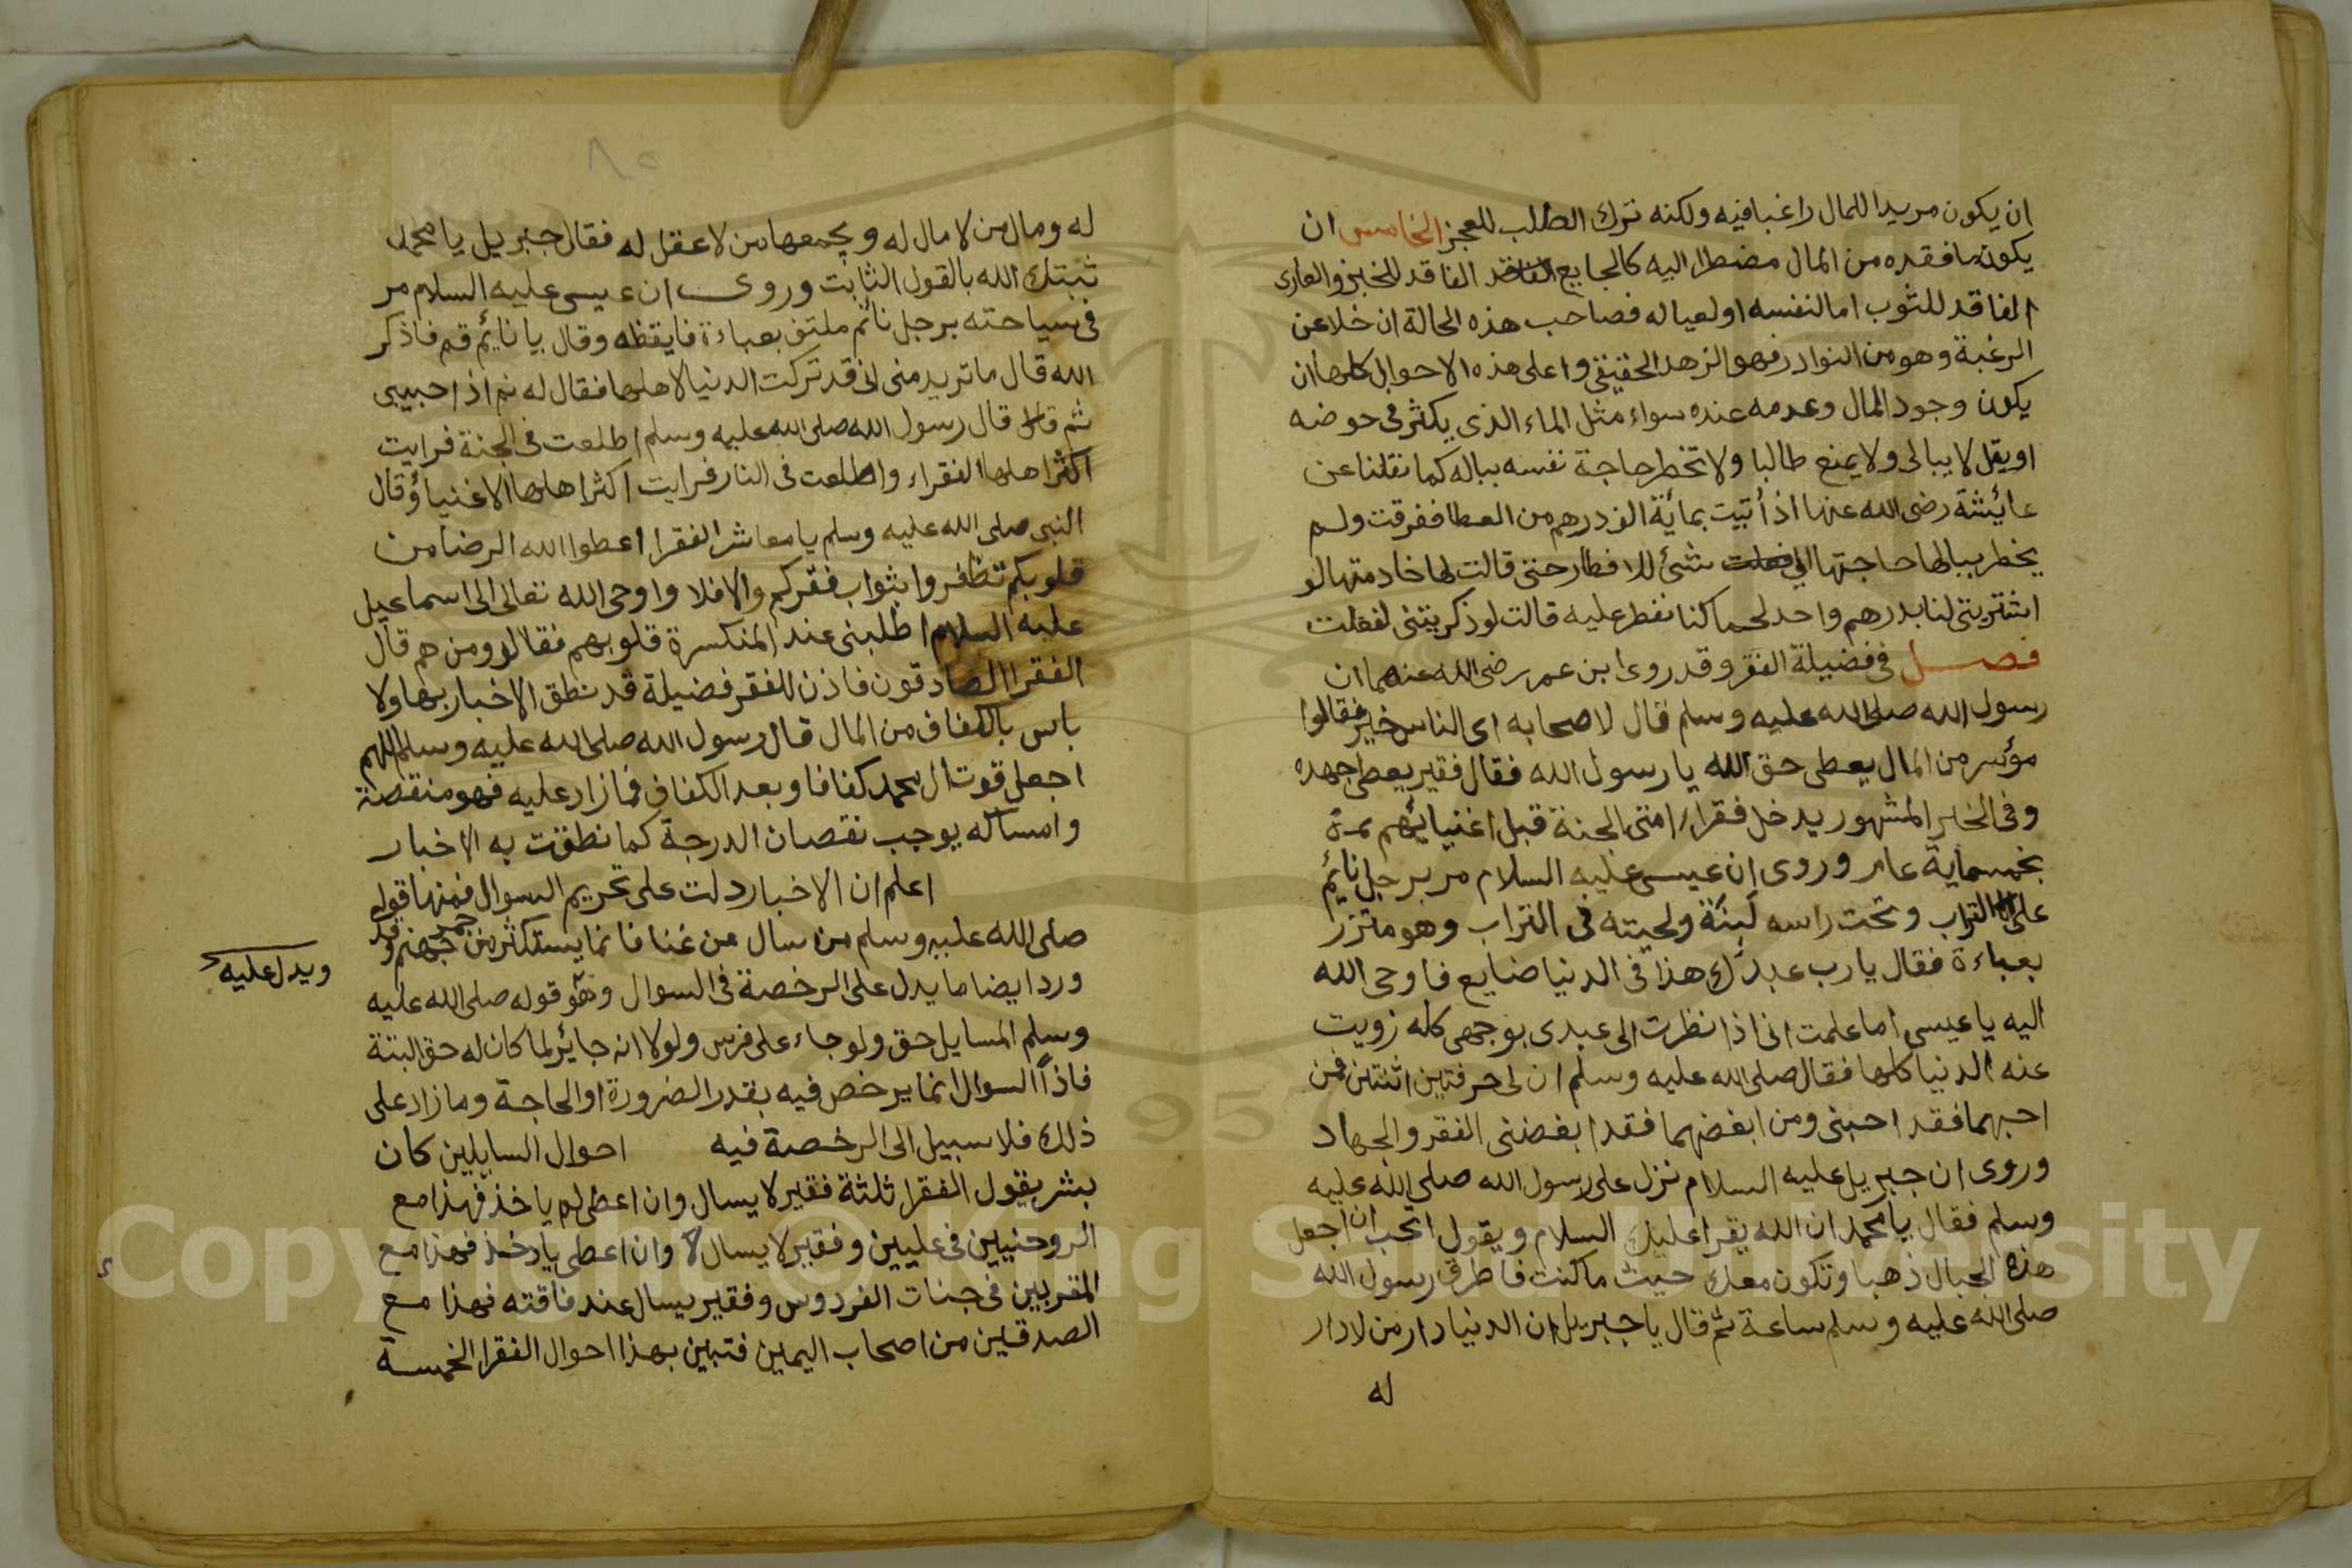 ان يكون مريدا للمال راغبا فيه ولكنه ترك الطلب للعجز الخامس ان
يكون ما فقده من المال مضطرا اليه كالجايع الفاقد للخبز والعارى
الفاقد للثوب اما لنفسه او لعياله فصاحب هذه الحالة ان خلا عن
الرغبة وهو من النوادر فهو الزهد الحقيقى واعلى هذه الاحوال كلها ان
يكون وجود المال وعدمه عنده سواء مثل الماء الذى يكثر فى حوضه
او يقل لا يبالى ولا يمنع طالبا ولا تخطر حاجة نفسه بباله كما نقلنا عن
عايشة رضى الله عنها اذ أتيت بماية الف درهم من العطا ففرقت ولم
يخطر ببالها حاجتها الى شئ للافطار حتى قالت لها خادمتها لو
اشتريتى لنا بدرهم واحد لحما كنا نفطر عليه قالت لو ذكريتنى لفعلت
فصل فى فضيلة الفقر وقد روى ابن عمر رضى الله عنهما ان
رسول الله صلى الله عليه وسلم قال لاصحابه اى الناس خير فقالوا
مؤسر من المال يعطى حق الله يا رسول الله فقال فقير يعطى جهده
وفى الخبر المشهور يدخل فقراء امتى الجنة قبل اغنيايهم
بخمسماية عام وروى ان عيسى عليه السلام مر برجل نائم
على التراب وتحت راسه لبنة ولحيته فى التراب وهو متزر
بعباءة فقال يا رب عبدك هذا فى الدنيا ضايع فاوحى الله
اليه يا عيسى اما علمت انى اذا نظرت الى عبدى بوجهى كله زويت
عنه الدنيا كلها فقال صلى الله عليه وسلم ان لى حرفتين اثنتين فمن
احبهما فقد احبنى ومن ابغضهما فقد ابغضنى الفقر والجهاد
وروى ان جبريل عليه السلام نزل على رسول الله صلى الله عليه
وسلم فقال يا محمد ان الله يقرا عليك السلام ويقول اتحب ان اجعل
هذه الجبال ذهبا وتكون معك حيث ما كنت فاطرق رسول الله
صلى الله عليه وسلم ساعة ثم قال يا جبريل ان الدنيا دار من لا دار
له
له ومال من لا مال له ويجمعها من لا عقل له فقال جبريل يا محمد
ثبتك الله بالقول الثابت وروى ان عيسى عليه السلام مر
فى سياحته برجل نائم ملتف بعباءة فايقظه وقال يا نايم قم فاذكر
الله قال ما تريد منى انى قد تركت الدنيا لاهلها فقال له نم اذا حبيبى
ثم قال قال رسول الله صلى الله عليه وسلم اطلعت فى الجنة فرايت
اكثر اهلها الفقراء واطلعت فى النار فرايت اكثر اهلها الاغنياء وقال
النبى صلى الله عليه وسلم يا معاشر الفقرا اعطوا الله الرضا من
قلوبكم تظفروا بثواب فقركم والا فلا واوحى الله تعالى الى اسماعيل
عليه السلام اطلبنى عند المنكسرة قلوبهم فقال ومن هم قال
الفقرا الصادقون فاذن للفقر فضيلة قد نطق الاخبار بها ولا
باس بالكفاف من المال قال رسول الله صلى الله عليه وسلم اللهم
اجعل قوت ال محمد كفافا وبعد الكفاف فما زاد عليه فهو منقصة
وامساكه يوجب نقصان الدرجة كما نطقت به الاخبار
اعلم ان الاخبار دلت على تحريم السوال فمنها قوله
صلى الله عليه وسلم من سال عن غنا فانما يستكثر من جمر جهنم وقد
ويدل عليه
ورد ايضا ما يدل على الرخصة فى السوال وهو قوله صلى الله عليه
وسلم المسايل حق ولو جاء على فرس ولولا انه جائز لما كان له حق البتة
فاذا السوال انما يرخص فيه بقدر الضرورة او الحاجة وما زاد على
ذلك فلا سبيل الى الرخصة فيه احوال السايلين كان
بشر يقول الفقرا ثلثة فقير لا يسال وان اعطى لم ياخذ فهذا مع
الروحنيين فى عليين وفقير لا يسال وان اعطى ياخذ فهذا مع
المقربين فى جنات الفردوس وفقير يسال عند فاقته فهذا مع
الصدقين من اصحاب اليمين فتبين بهذا احوال الفقرا الخمسة
Copyright © King Saud University